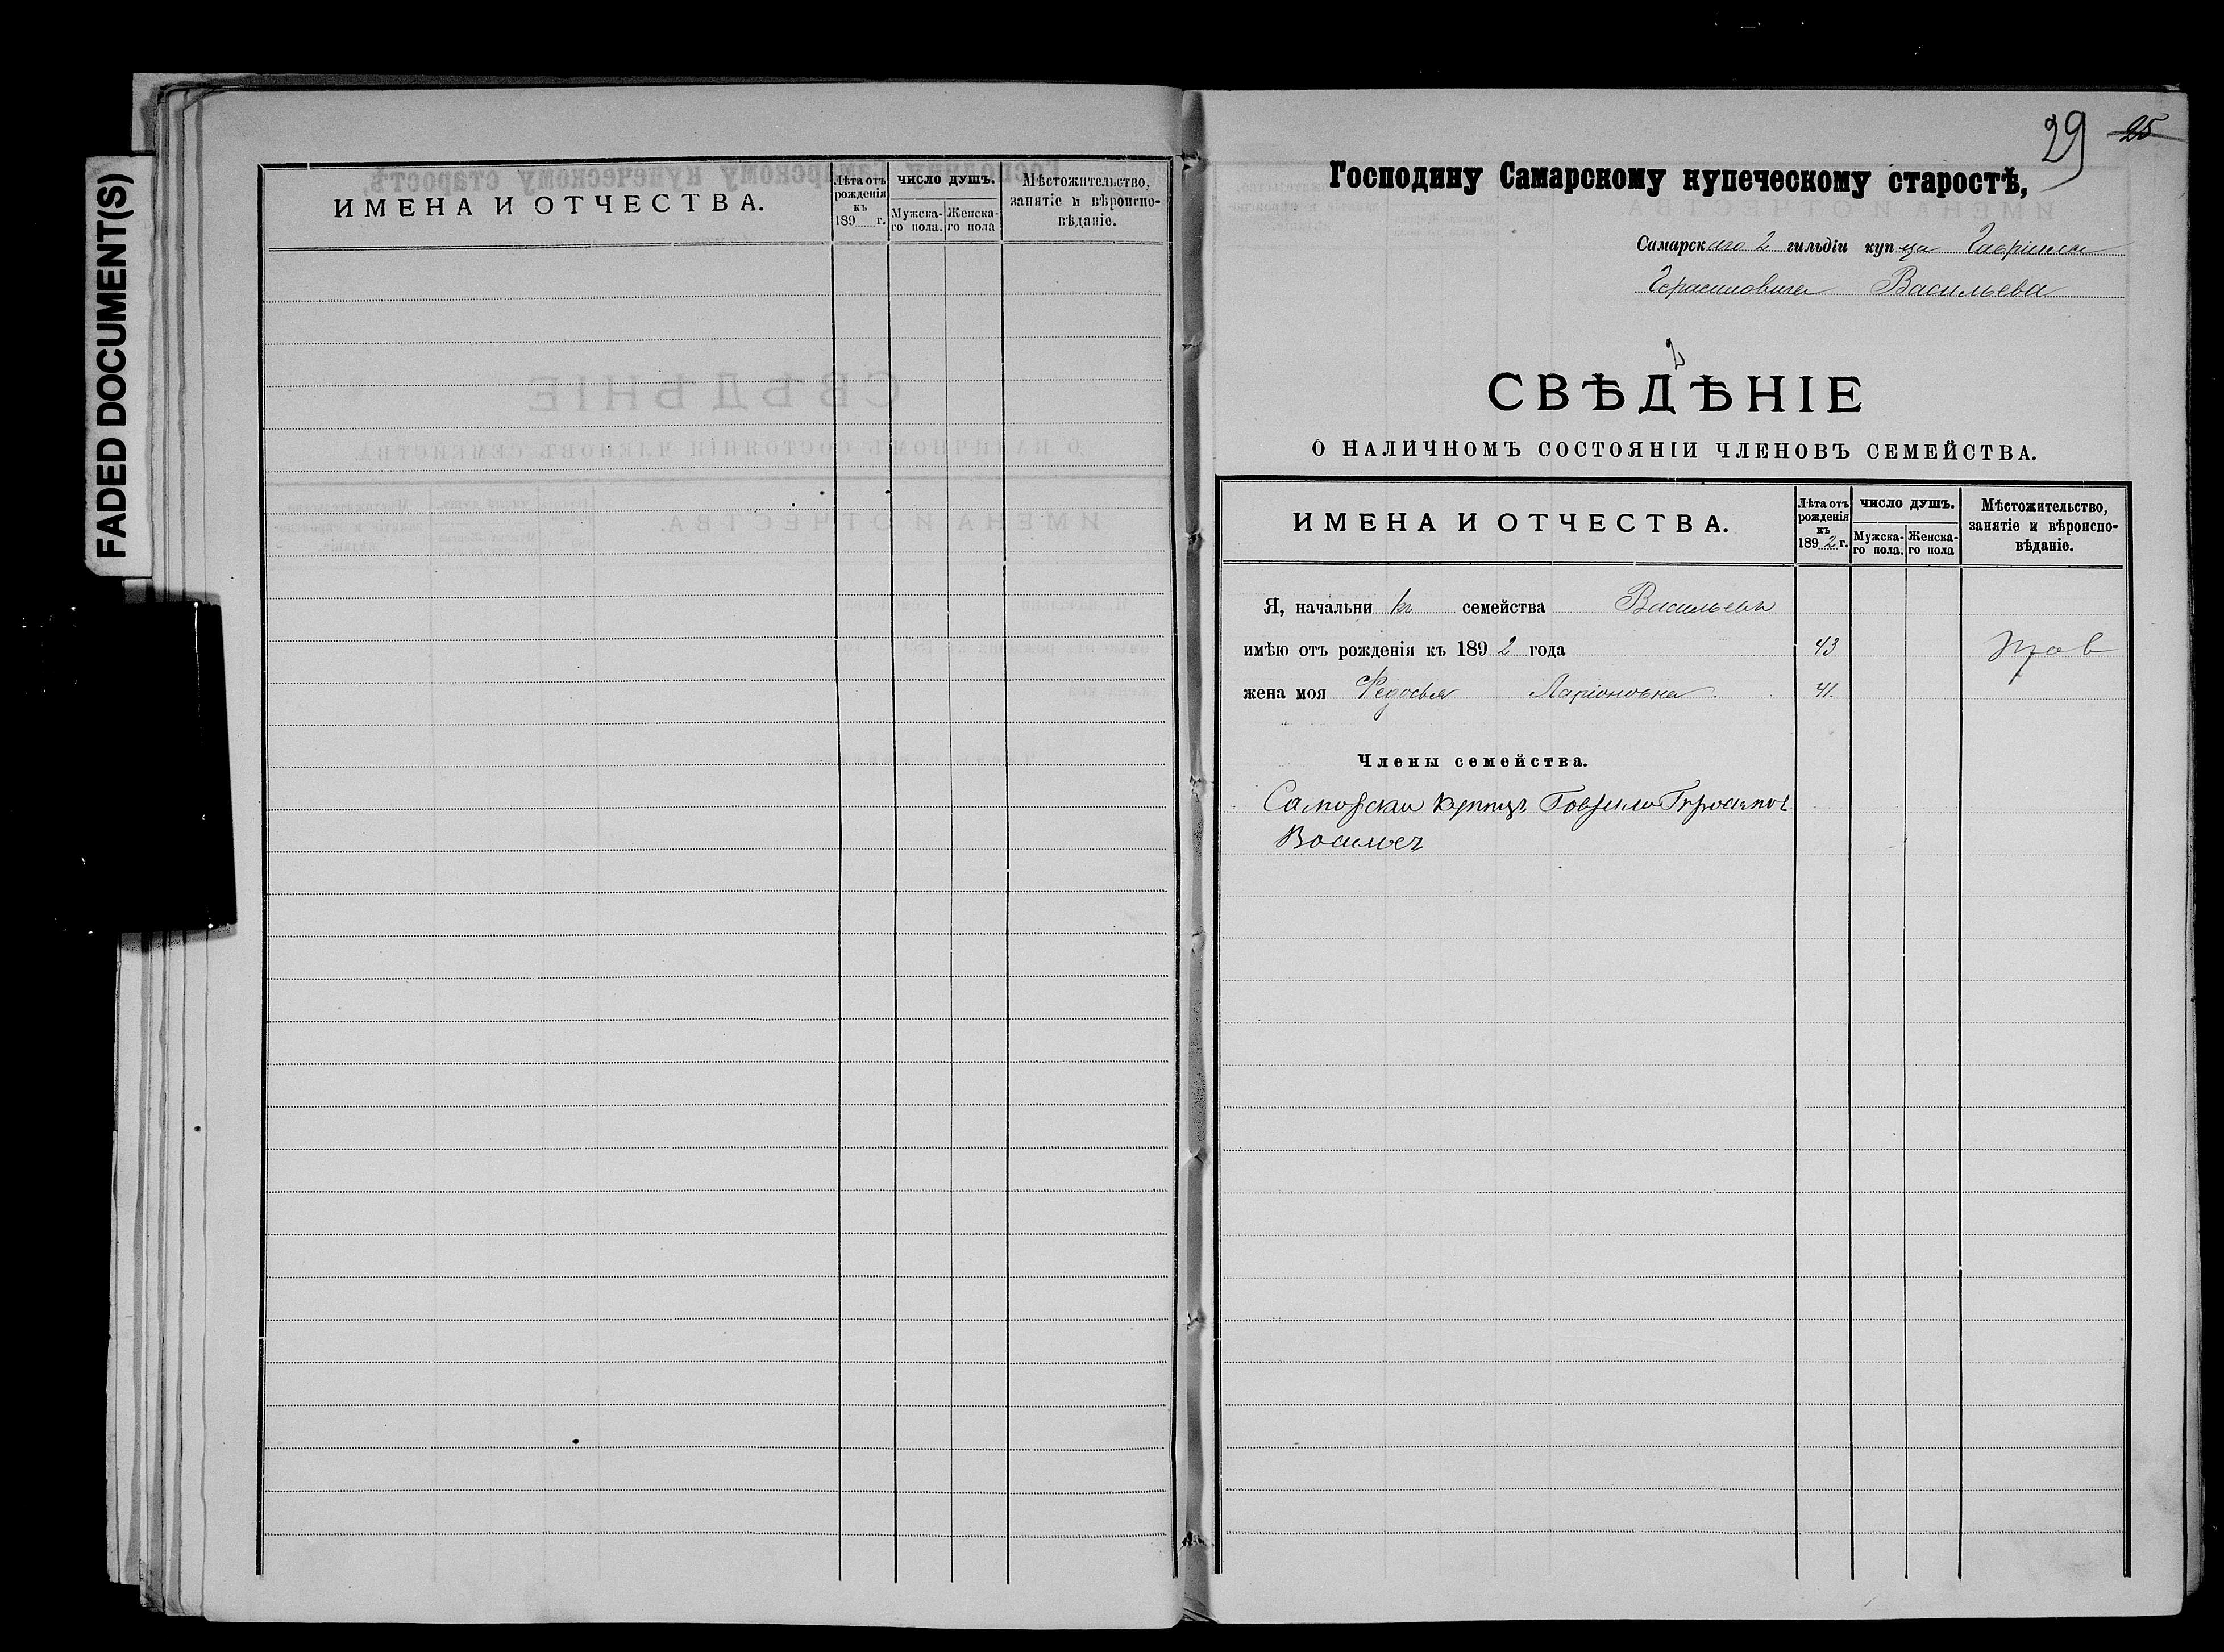 FADED DOCUMENT(S)
ИМЕНА И ОТЧЕСТВА.
Лѣта отъ рожденія къ 189 г.
ЧИСЛО ДУШЪ.
Мужска-го пола.
Женска-го пола
Мѣстожительство, занятіе и вѣроиспо-вѣданіе.
29 25
Господину Самарскому купеческому старостѣ,
Самарскаго 2 гильдіи купца Гавріила
Герасимовича Васильева
2
СВѢДѢНІЕ
О НАЛИЧНОМЪ СОСТОЯНІИ ЧЛЕНОВЪ СЕМЕЙСТВА.
ИМЕНА И ОТЧЕСТВА.
Лѣта отъ рожденія къ 1892 г.
ЧИСЛО ДУШЪ.
Мужска-го пола.
Женска-го пола
Мѣстожительство, занятіе и вѣроиспо-вѣданіе.
Я, начальникъ семейства Васильевъ
имѣю отъ рожденія къ 1892 года 43
жена моя Федосья Ларіоновна 41.
Члены семейства.